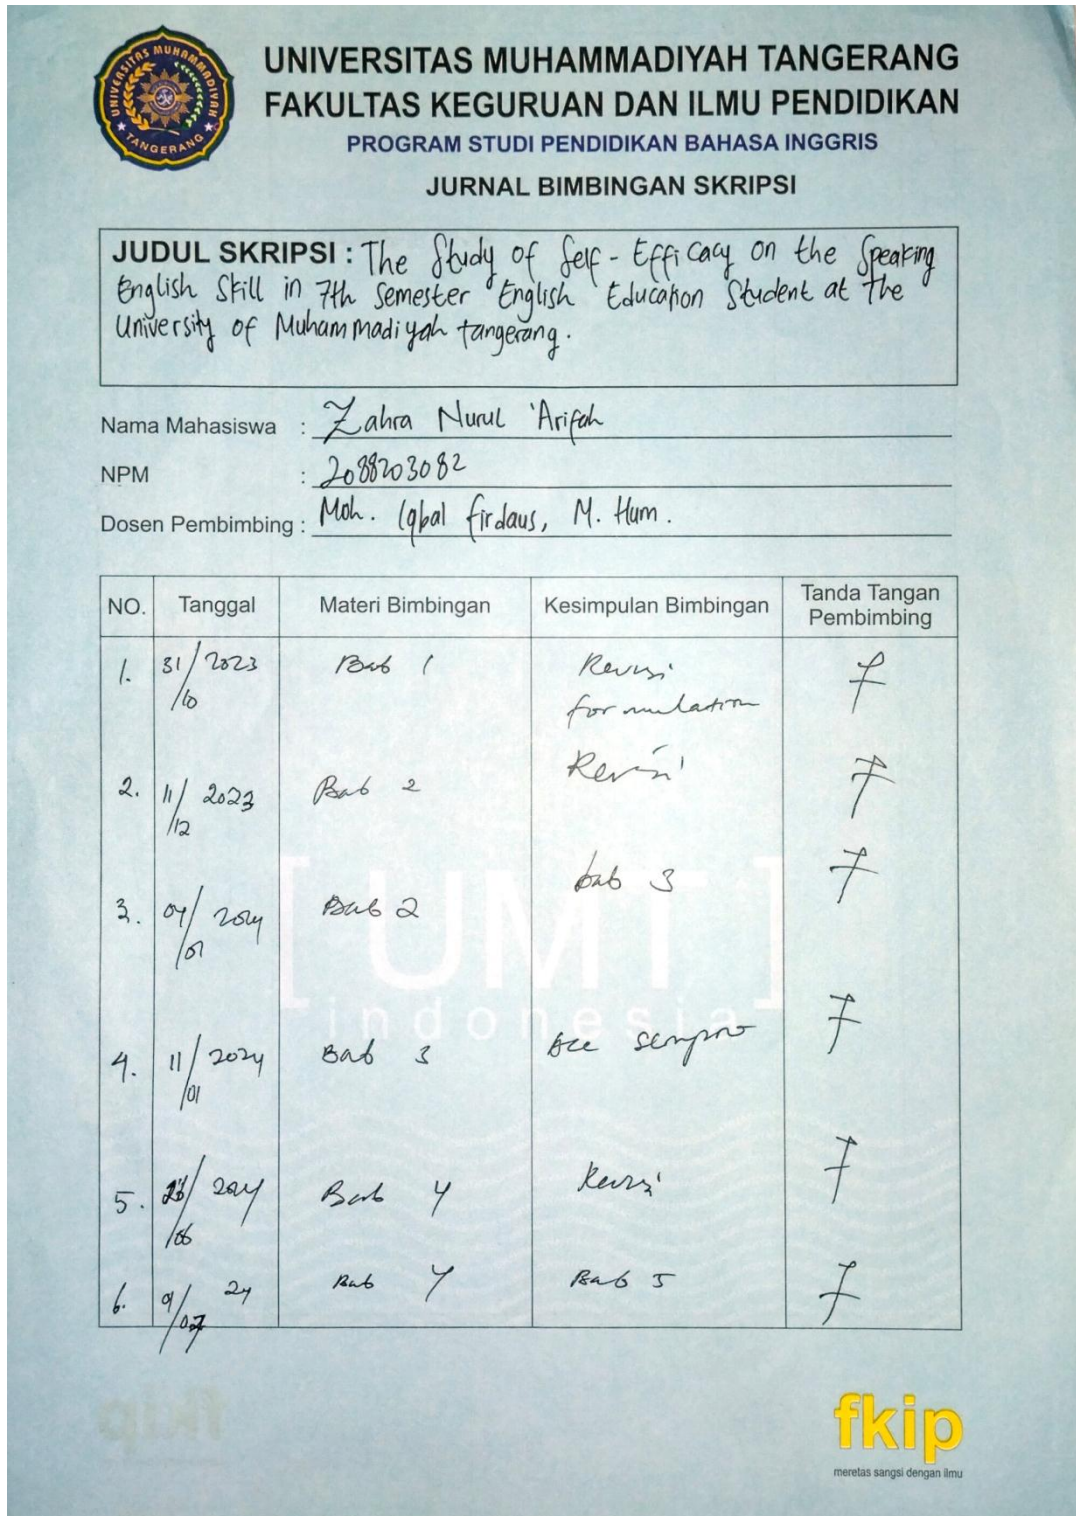 UNIVERSITAS MUHAMMADIYAH TANGERANG
UNIVERSITAS MUHAMMADIYAH TANGERANG
FAKULTAS KEGURUAN DAN ILMU PENDIDIKAN
PROGRAM STUDI PENDIDIKAN BAHASA INGGRIS
JURNAL BIMBINGAN SKRIPSI
JUDUL SKRIPSI : The Study of Self-Efficacy on the Speaking
English Skill in 7th Semester English Education Student at the
University of Muhammadiyah tangerang.
Nama Mahasiswa : Zahra Nurul 'Arifah
NPM : 2088203082
Dosen Pembimbing : Moh. Iqbal firdaus, M. Hum.
NO. Tanggal Materi Bimbingan Kesimpulan Bimbingan Tanda Tangan Pembimbing
1. 31/10 2023 Bab 1 Revisi formulation
2. 11/12 2023 Bab 2 Revisi
3. 04/01 2024 Bab 2 bab 3
4. 11/01 2024 Bab 3 Acc sempro
5. /06 2024 Bab 4 Revisi
6. 9/07 24 Bab 4 Bab 5
[UMT]
indonesia
fkip
meretas sangsi dengan ilmu